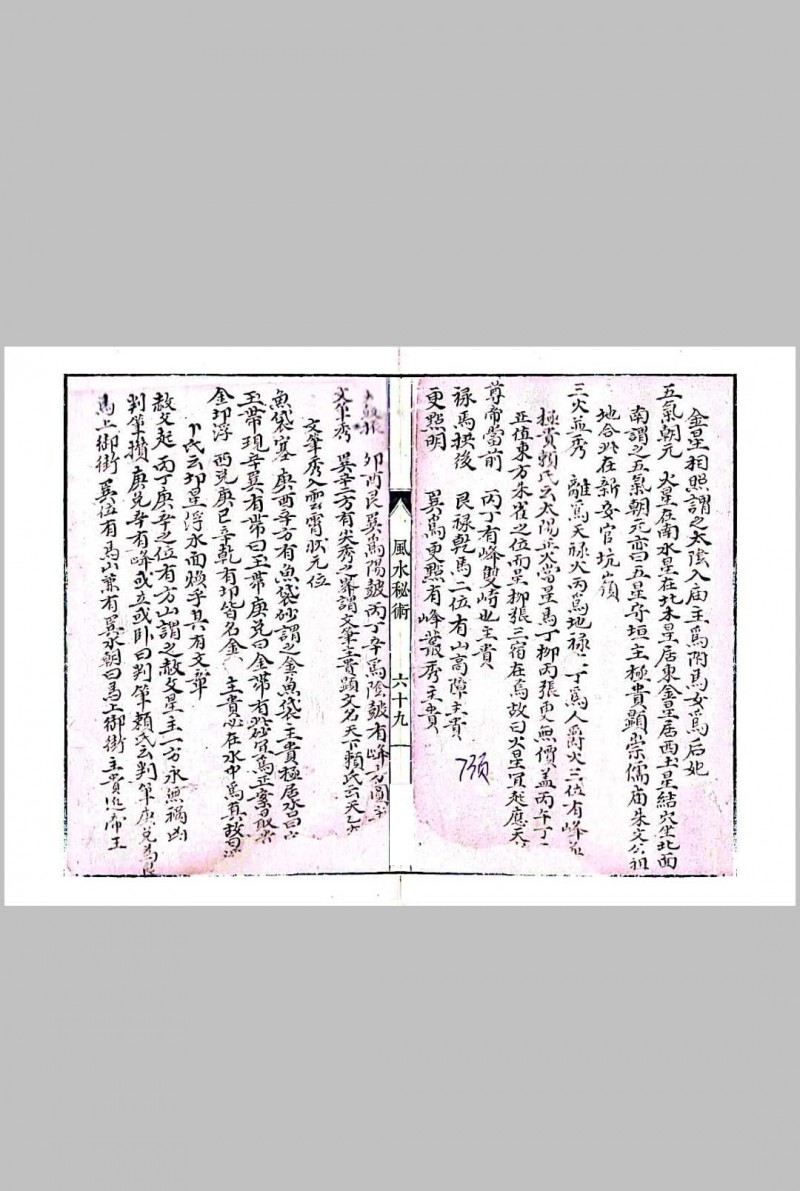 金星相照謂之太陰入庙主爲附馬女爲后妃
五氣朝元 火星在南水星在北木星居東金星居西土星結穴坐北面
南謂之五氣朝元亦曰五星守垣主極貴顯崇儒庙朱文公祖
地合此在新安官坑嶺
三火並秀 離爲天禄火丙爲地禄 丁爲人爵火三位有峰
極貴頼氏云太陽 太當星馬丁柳丙張更無價盖丙午丁
正值東方朱雀之位而星柳張三宿在焉故曰火星宜 應天
尊帝當前 丙丁有峰雙崎也主貴
禄馬拱後 艮禄乾馬二位有山高障主貴
更點明 巽爲更點有峰叢秀主貴
風水秘術 六十九
卯酉艮巽爲陽皷丙丁辛爲陰皷有峰 圓
文筆秀 巽辛二方有尖秀之峯謂文筆主貴顕文名天下頼氏云天乙
文筆秀入雲霄狀元位
魚袋塞 庚酉辛方有魚袋砂謂之金魚袋主貴極居水口
玉帶現 辛巽有帶曰玉帶庚兑曰金帶有此砂 爲正案最貴
金印浮 西兑庚巳辛乾有印皆名金 主貴必在水中爲真故曰
卜氏云印星浮水面焕乎其有文章
赦文起 丙丁庚辛之位有方山謂之赦文星主一方永無禍凶
判筆攢 庚兑辛有峰或立或卧曰判筆頼氏云判筆庚兑
馬上御街 巽位有馬山兼有巽水朝曰馬上御街主貴近帝王